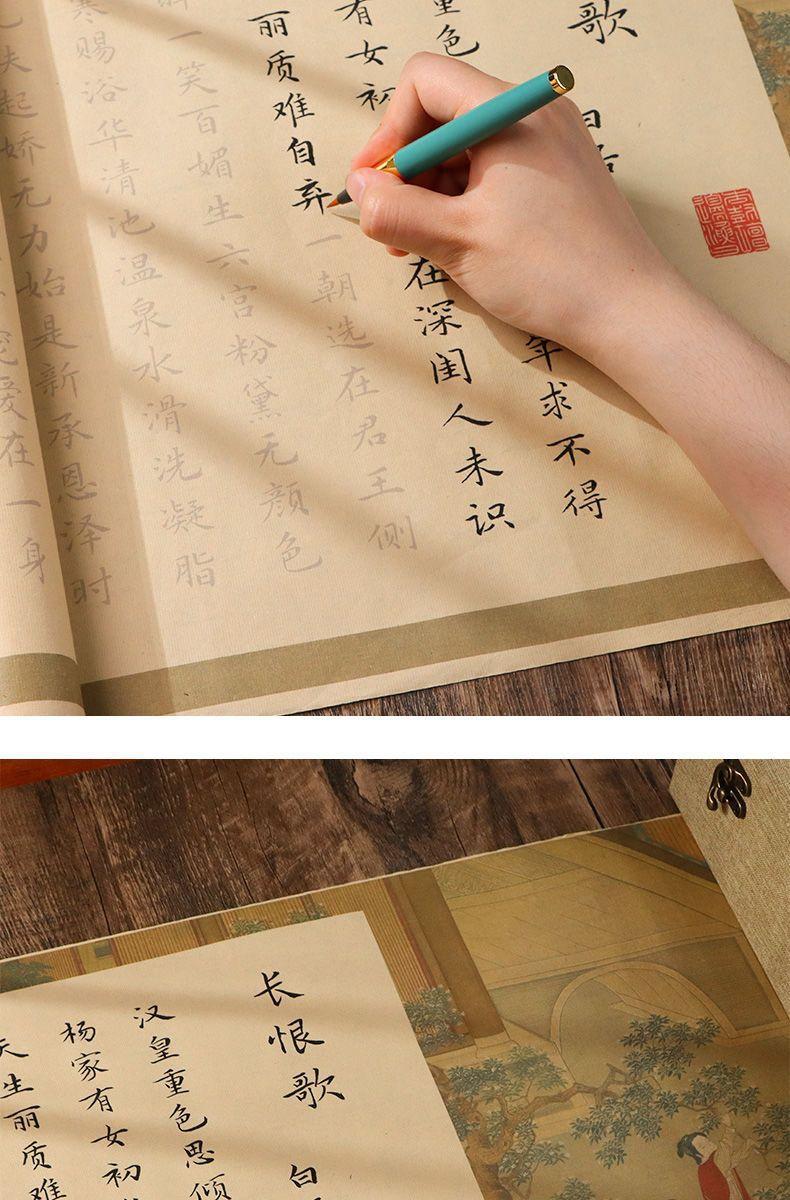 歌
重色
年求不得
有女初
在深闺人未识
丽质难自弃一朝选在君王侧
一笑百媚生六宫粉黛无颜色
寒赐浴华清池温泉水滑洗凝脂
起娇无力始是新承恩泽时
爱在一身
长恨歌 白
汉皇重色思倾
杨家有女初
天生丽质难